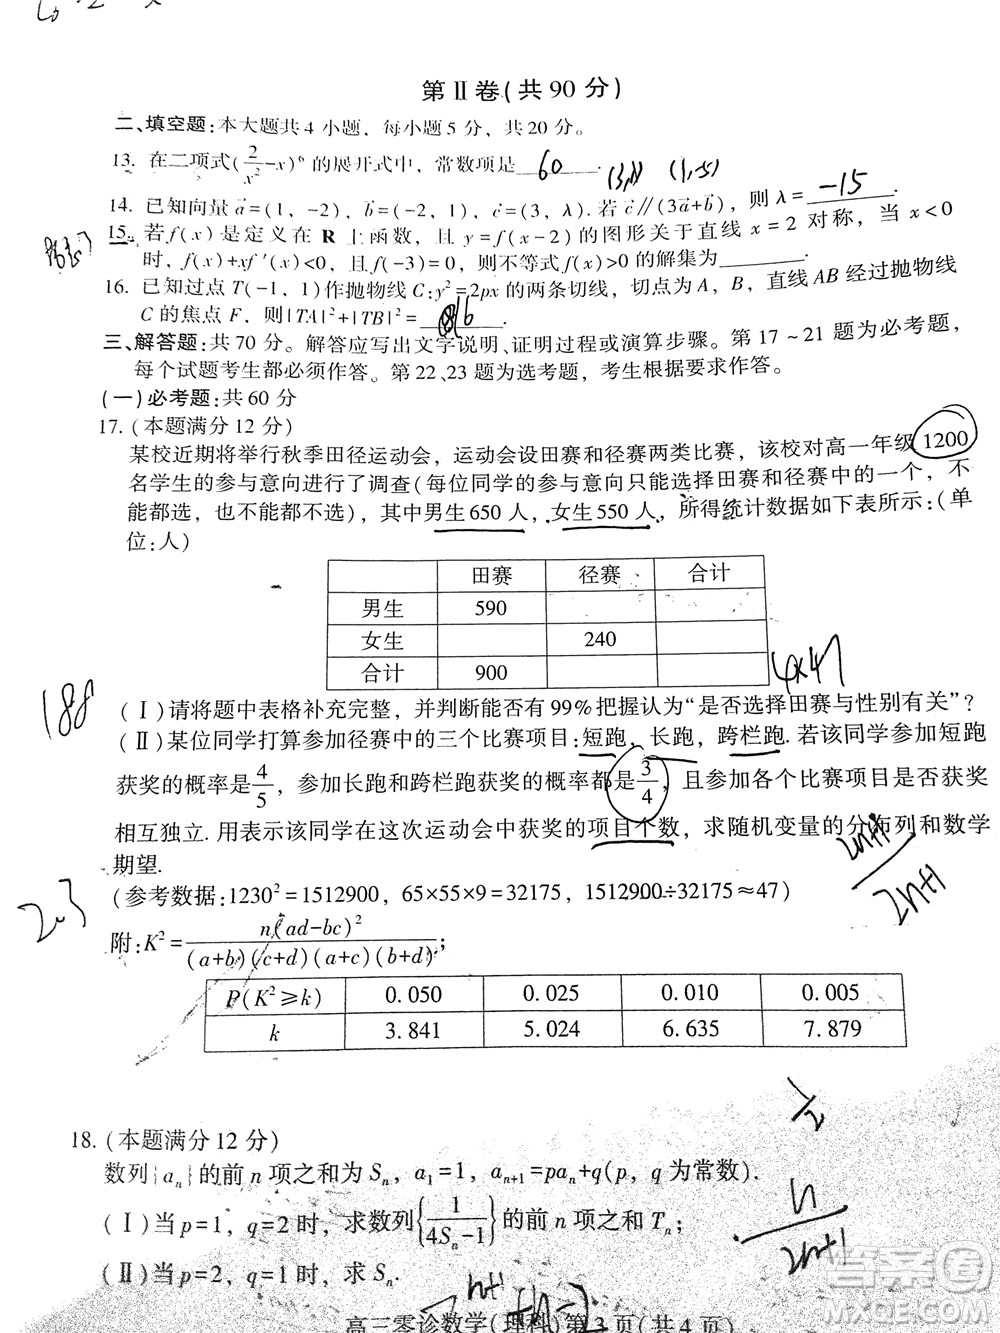 第Ⅱ卷(共90分)
二、填空题:本大题共4小题, 每小题5分, 共20分。
13. 在二项式(2/x²-x)⁶的展开式中, 常数项是 60 .
(1,-5)
14. 已知向量a⃗=(1, -2), b⃗=(-2, 1), c⃗=(3, λ). 若c⃗∥(3a⃗+b⃗), 则λ= -15 .
15. 若f(x)是定义在R上函数, 且y=f(x-2)的图形关于直线x=2对称, 当x<0
时, f(x)+xf′(x)<0, 且f(-3)=0, 则不等式f(x)>0的解集为
16. 已知过点T(-1, 1)作抛物线C:y²=2px的两条切线, 切点为A, B, 直线AB经过抛物线
C的焦点F, 则|TA|²+|TB|²=
三、解答题:共70分。解答应写出文字说明、证明过程或演算步骤。第17~21题为必考题,
每个试题考生都必须作答。第22、23题为选考题, 考生根据要求作答。
(一)必考题:共60分
17. (本题满分12分)
某校近期将举行秋季田径运动会, 运动会设田赛和径赛两类比赛, 该校对高一年级1200
名学生的参与意向进行了调查(每位同学的参与意向只能选择田赛和径赛中的一个, 不
能都选, 也不能都不选), 其中男生650人, 女生550人, 所得统计数据如下表所示:(单
位:人)
田赛 径赛 合计
男生 590
女生 240
合计 900
4×47
188
(Ⅰ)请将题中表格补充完整, 并判断能否有99%把握认为“是否选择田赛与性别有关”?
(Ⅱ)某位同学打算参加径赛中的三个比赛项目:短跑, 长跑, 跨栏跑. 若该同学参加短跑
获奖的概率是4/5, 参加长跑和跨栏跑获奖的概率都是3/4, 且参加各个比赛项目是否获奖
相互独立. 用表示该同学在这次运动会中获奖的项目个数, 求随机变量的分布列和数学
期望.
2n+1
(参考数据:1230²=1512900, 65×55×9=32175, 1512900÷32175≈47)
附:K²=n(ad-bc)²/(a+b)(c+d)(a+c)(b+d);
P(K²≥k) 0.050 0.025 0.010 0.005
k 3.841 5.024 6.635 7.879
1/2
18. (本题满分12分)
数列{aₙ}的前n项之和为Sₙ, a₁=1, aₙ₊₁=paₙ+q(p, q为常数).
(Ⅰ)当p=1, q=2时, 求数列{1/(4Sₙ-1)}的前n项之和Tₙ;
n/2n+1
(Ⅱ)当p=2, q=1时, 求Sₙ.
n+1
高三零诊数学(理科)第3页(共4页)
答案圈